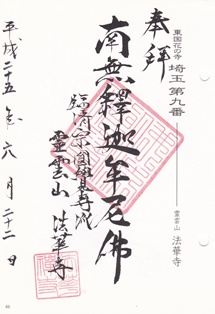 東国花の寺 埼玉第九番 霊雲山 法華寺
奉拝
南無釋迦牟尼佛
臨済宗圓覺寺派
靈雲山 法華寺
平成二十五年六月二十二日